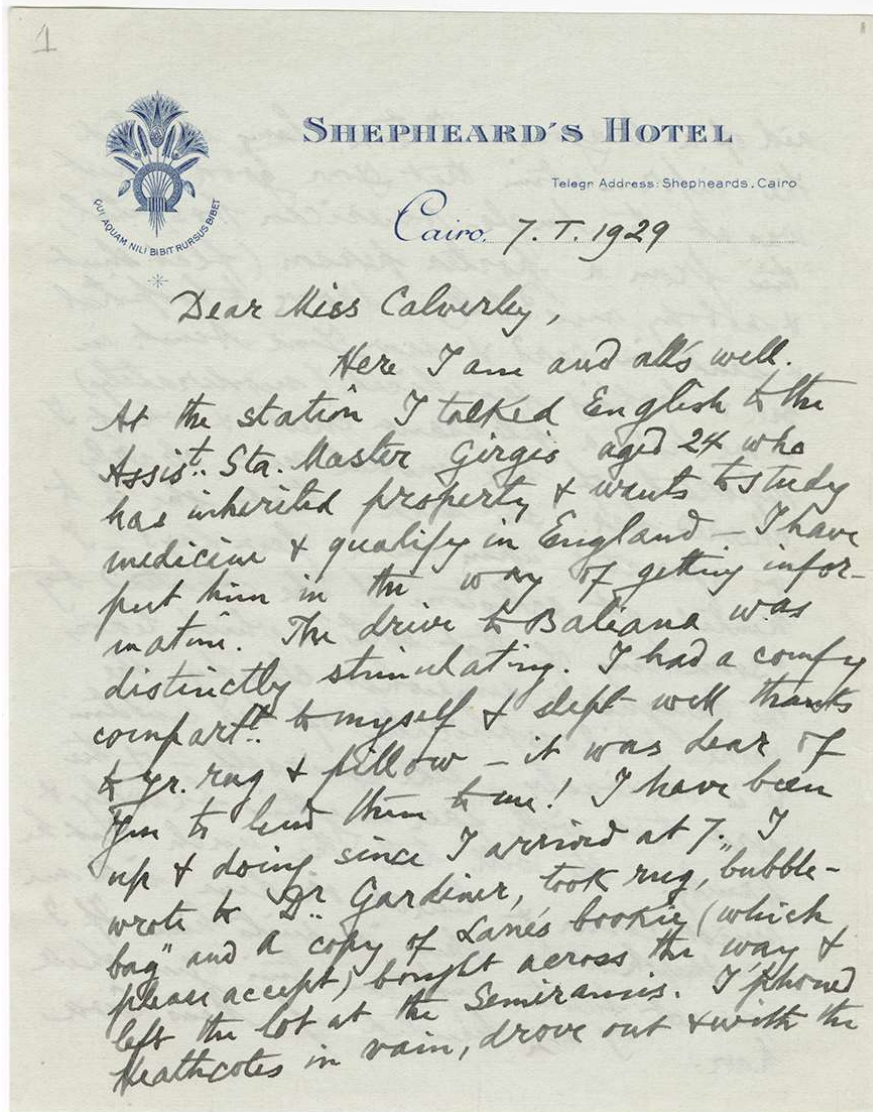 1
SHEPHEARD'S HOTEL
Telegr Address: Shepheards, Cairo
QUI AQUAM NILI BIBIT RURSUS BIBET
Cairo, 7. I. 1929
Dear Miss Calverley,
Here I am and all's well.
At the station I talked English to the
Assist. Sta. Master Girgis aged 24 who
has inherited property & wants to study
medicine & qualify in England – I have
put him in the way of getting infor-
mation. The drive to Baliana was
distinctly stimulating. I had a comfy
compartt. to myself & slept well thanks
to yr. rug & pillow – it was dear of
you to lend them to me! I have been
up & doing since I arrived at 7. I
wrote to Dr. Gardiner, took rug, "bubble-
bag" and a copy of Lane's bookie (which
please accept) bought across the way &
left the lot at the Semiramis. I 'phoned
Heathcotes in vain, drove out & with the